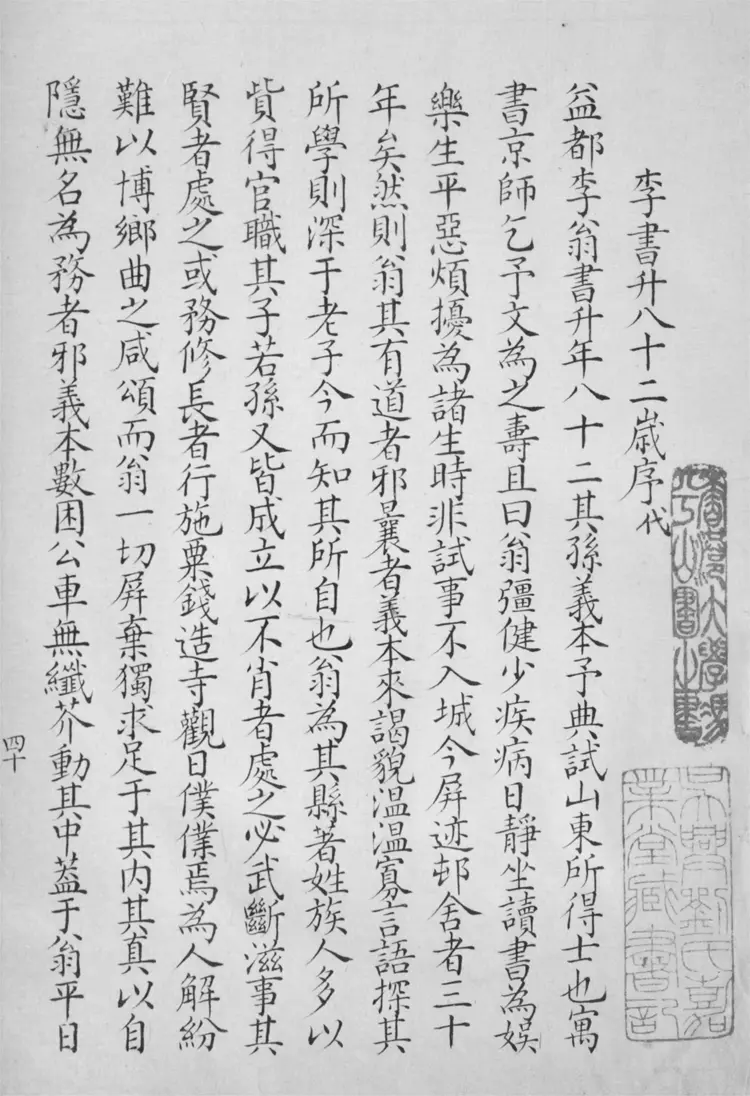 李書升八十二歲序代
益都李翁書升年八十二其孫義本予典試山東所得士也寓
書京師乞予文為之壽且曰翁彊健少疾病日靜坐讀書為娛
樂生平惡煩擾為諸生時非試事不入城今屏迹邨舍者三十
年矣然則翁其有道者邪曩者義本來謁貌溫溫寡言語探其
所學則深于老子今而知其所自也翁為其縣著姓族人多以
貲得官職其子若孫又皆成立以不肖者處之必武斷滋事其
賢者處之或務修長者行施粟錢造寺觀日僕僕焉為人解紛
難以博鄉曲之咸頌而翁一切屏棄獨求足于其內其真以自
隱無名為務者邪義本數困公車無纖芥動其中蓋于翁平日
四十
香港大學馮平山圖書館藏書
吳興劉氏嘉業堂藏書記